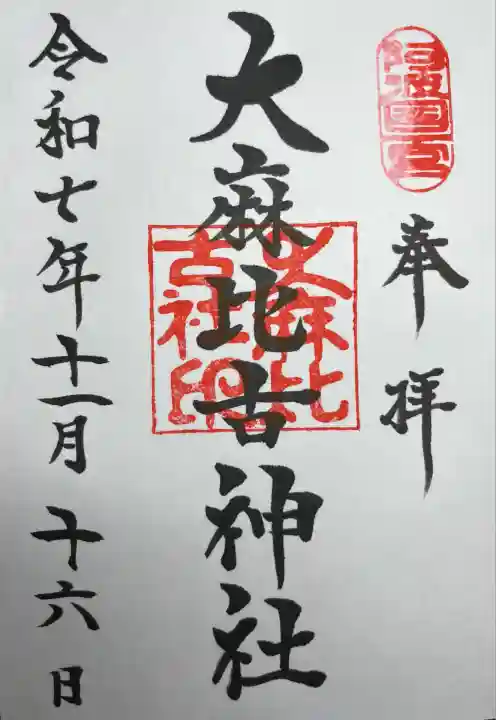 阿波國一宮
奉拝
大麻比古神社
大麻比
古社印
令和七年十一月十六日